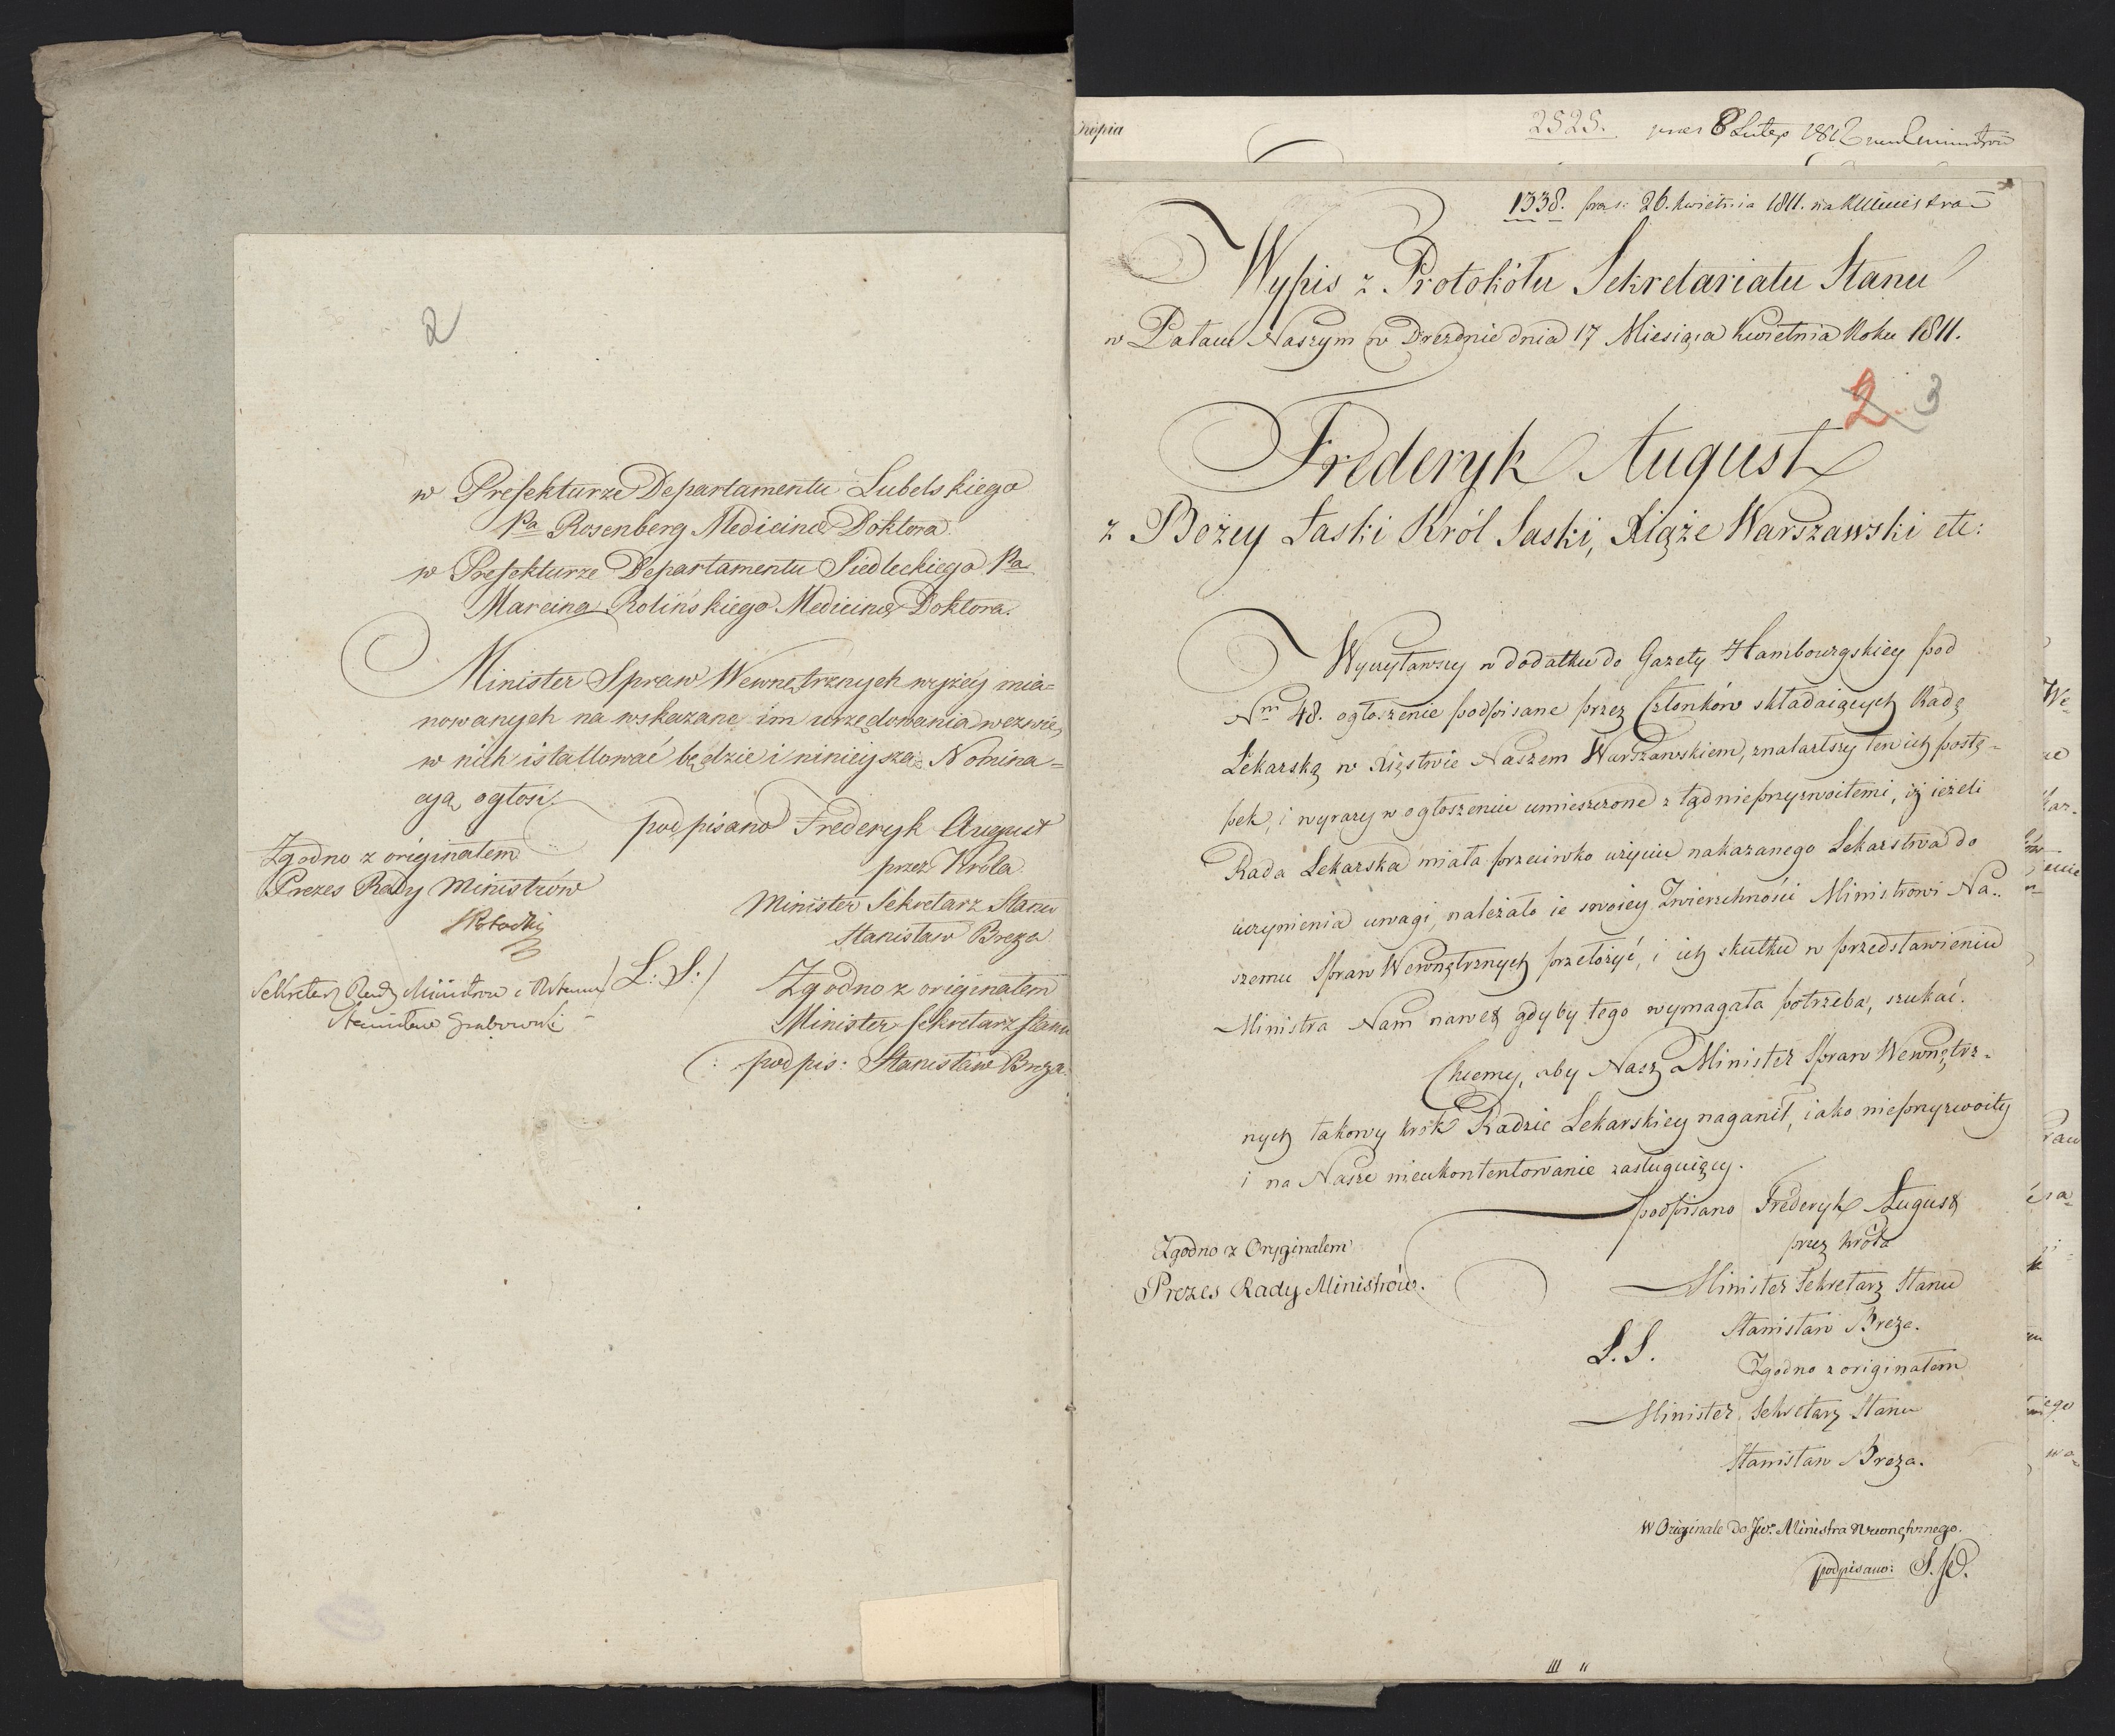 2
w Prefekturze Departamentu Lubelskiego
Pa Rosenberg Medicinæ Doktora.
w Prefekturze Departamentu Siedleckiego Pa
Marcina Rolińskiego Medicinæ Doktora.
Minister Spraw Wewnętrznych wyżéy mia=
nowanych na wskazane im urzędowania wezwie,
w nich istallować będzie i ninieysza Nomina=
cyą ogłosi.
podpisano Frederyk August
przez Króla
Minister Sekretarz Stanu
Stanisław Breza
/ L: S: /
Zgodno z originałem
Minister Sekretarz Stanu
(: podpis: Stanisław Breza.
Zgodno z originałem
Prezes Rady Ministrów
Sekretarz Rady Ministrów
Stanisław Grabowski
Kopia
2525. 8 Lutego 1812
1338. pras: 26. kwietnia 1811. na Ministra
Wypis z Protokółu Sekretariatu Stanu
w Pałacu Naszym w Dreznie dnia 17 Miesiąca Kwietnia Roku 1811.
2. 3
Frederyk August
z Bożey Łaski Król Saski, Xiąże Warszawski etc:
Wyczytawszy w dodatku do Gazety Hambourgskiey pod
Nm 48. ogłoszenie podpisane przez Członków składaiących Radę
Lekarską w Xięstwie Naszem Warszawskiem, znalazłszy ten ich postę-
pek, i wyrazy w ogłoszeniu umieszczone z tąd nieprzyzwoitemi, iż ieżeli
Rada Lekarska miała przeciwko użyciu nakazanego Lekarstwa do
uczynienia uwagi, należało ie swoiey Zwierzchności Ministrowi Na..
szemu Spraw Wewnętrznych przełożyć, i ich skutku w przedstawieniu
Ministra Nam nawet gdyby tego wymagała potrzeba, szukać.
Chcemy, aby Nasz Minister Spraw Wewnętrz-
nych takowy krok Radzie Lekarskiey naganił, iako nieprzyzwoity
i na Nasze nieukontentowanie zasługuiący.
podpisano Frederyk August
przez Króla
Minister Sekretarz Stanu
Stanisław Breza.
L. S.
Zgodno z originałem
Minister Sekretarz Stanu
Stanisław Breza.
Zgodno z Oryginałem
Prezes Rady Ministrów.
W Originale Do Jw. Ministra Wewnętrznego.
podpisano: